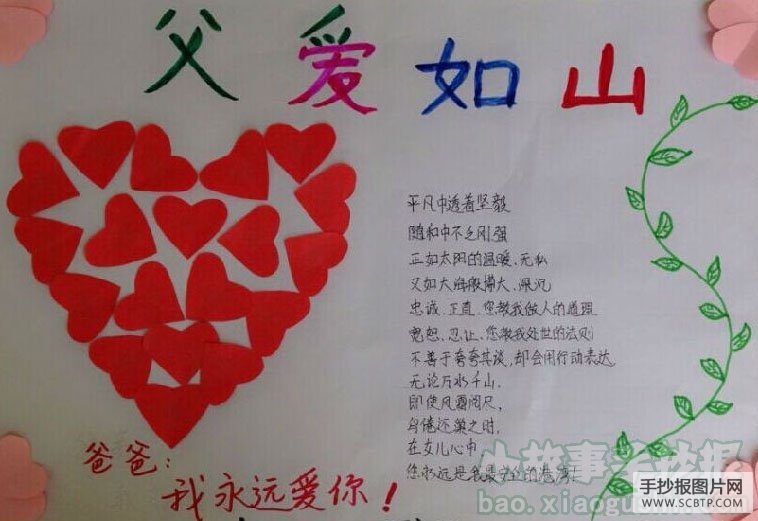 父爱如山
平凡中透着坚毅
随和中不乏刚强
正如太阳的温暖、无私
又如大海般博大、深沉
忠诚、正直、您教我做人的道理
宽恕、忍让、您教我处世的法则
不善于夸夸其谈，却会用行动表达
无论万水千山，
即使风霜阅尽，
鸟倦还巢之时，
在女儿心中，
您永远是我最安全的港湾！
爸爸：
我永远爱你！
bao.xiaogu
手抄报图片网
WWW.SCBTP.COM